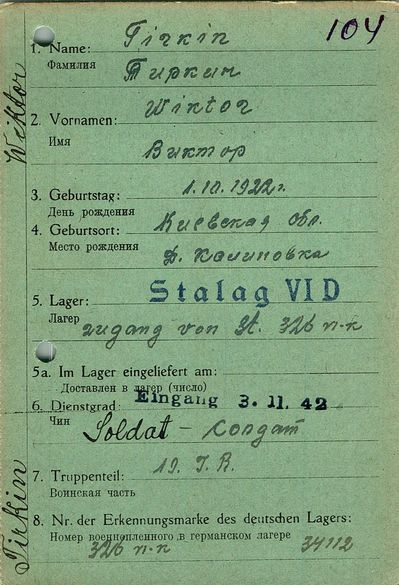 104
1. Name: Tirkin
Фамилия Тиркин
2. Vornamen: Wiktor
Имя Виктор
3. Geburtstag: 1.10.1922г.
День рождения
4. Geburtsort: Киевская обл.
Место рождения Д. Калиновка
5. Lager: Stalag VI D
Лагер zugang von St. 326 п-к
5a. Im Lager eingeliefert am:
Доставлен в лагер (число)
Eingang 3. 11. 42
6. Dienstgrad:
Чин Soldat - солдат
7. Truppenteil: 19. J. R.
Воинская часть
8. Nr. der Erkennungsmarke des deutschen Lagers:
Номер военнопленного в германском лагере
326 п-к 34112
Tirkin Wiktor